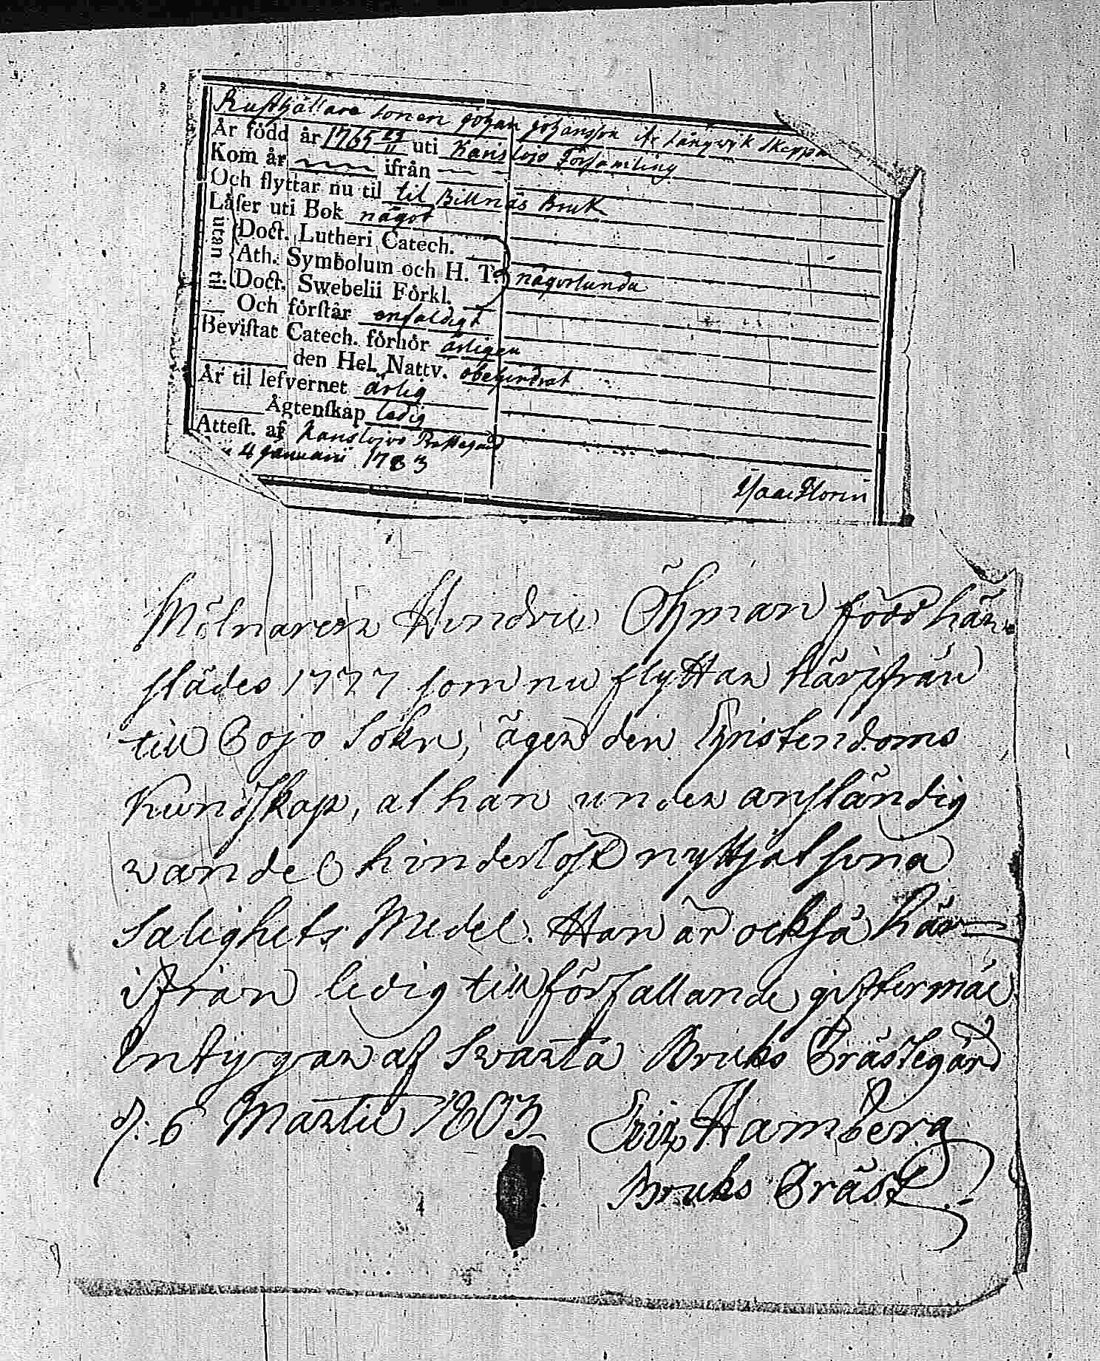 Rusthållare sonen Johan Johansson ifr Långwik Skeppa
Är född år 1765 23/11 uti Karislojo Församling
Kom år ~~~ ifrån ~~
Och flyttar nu til til Billnäs Bruk
Låser uti Bok något
utan til:
Doct. Lutheri Catech.
Ath. Symbolum och H. T. någorlunda
Doct. Swebelii Förkl.
Och förstår enfaldigt
Bevistat Catech. förhör årligen
den Hel. Nattv. obehindrat
Är til lefvernet ärlig
Ägtenskap ledig
Attest. af Karislojo Prestegård
4 Januarii 1783
Isaac Florin
Mölnaren Hindric Öhman född här-
städes 1777 som nu flyttar härifrån
till Pojo Sokn, äger den Christendoms
Kundskap, at han under anständig
wandel hinderlöst nyttjat sina
Salighets Medel. Han är också här=
ifrån ledig till förfallande giftermål
Intygar af Swartå Bruks Prästegård
d: 6 Martii 1803 Eric Hamberg
Bruks Präst.